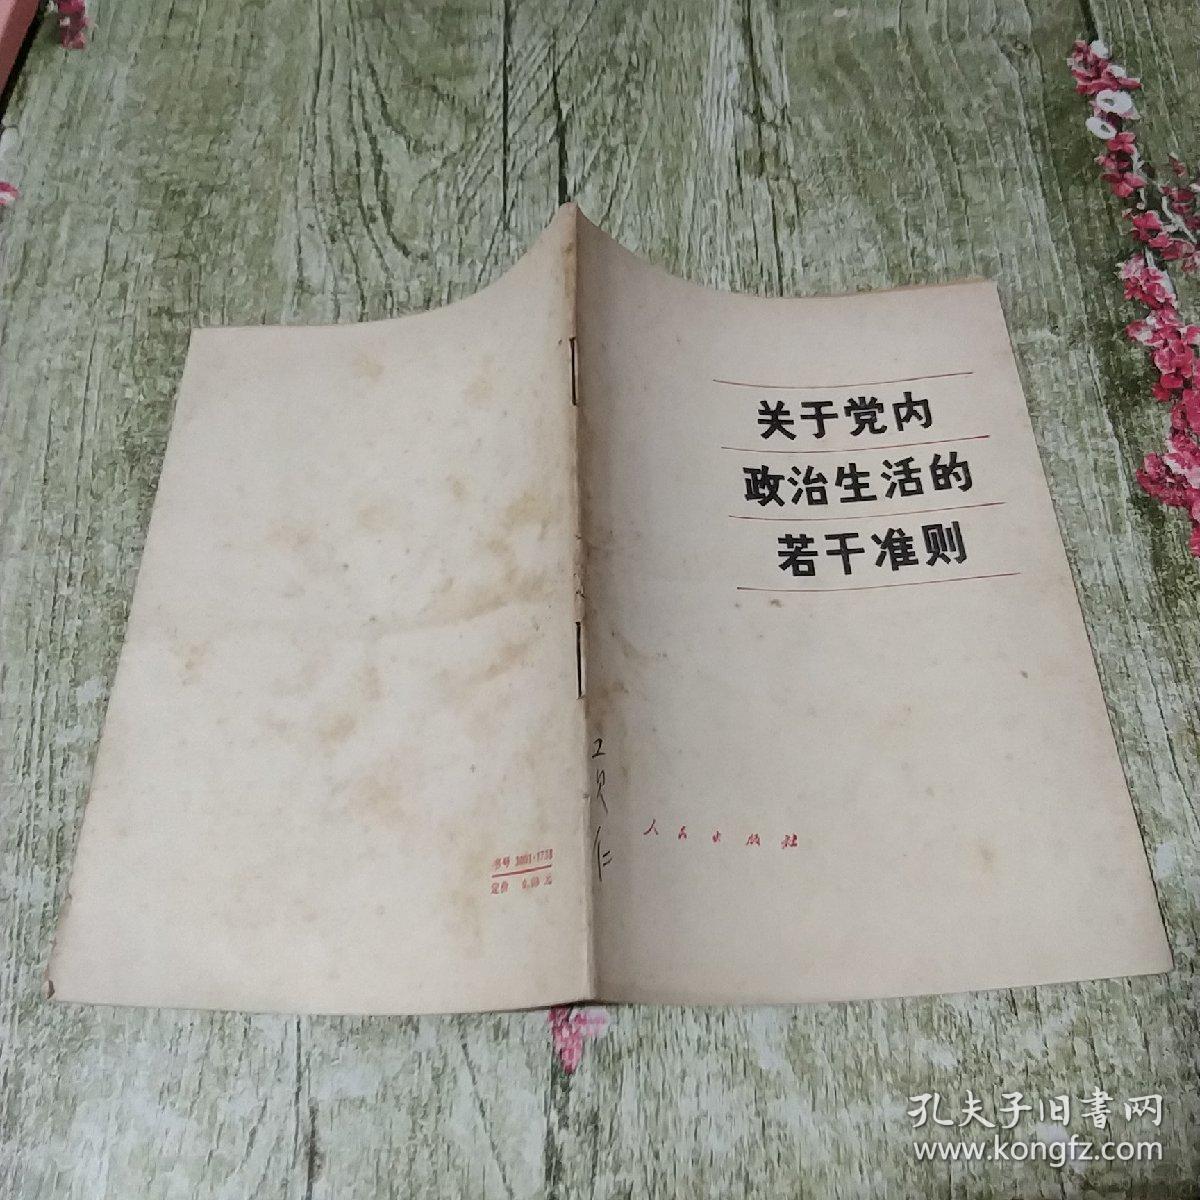 关于党内
政治生活的
若干准则
人民出版社
书号 3001·1733
定价 0.09 元
孔夫子旧書网
www.kongfz.com